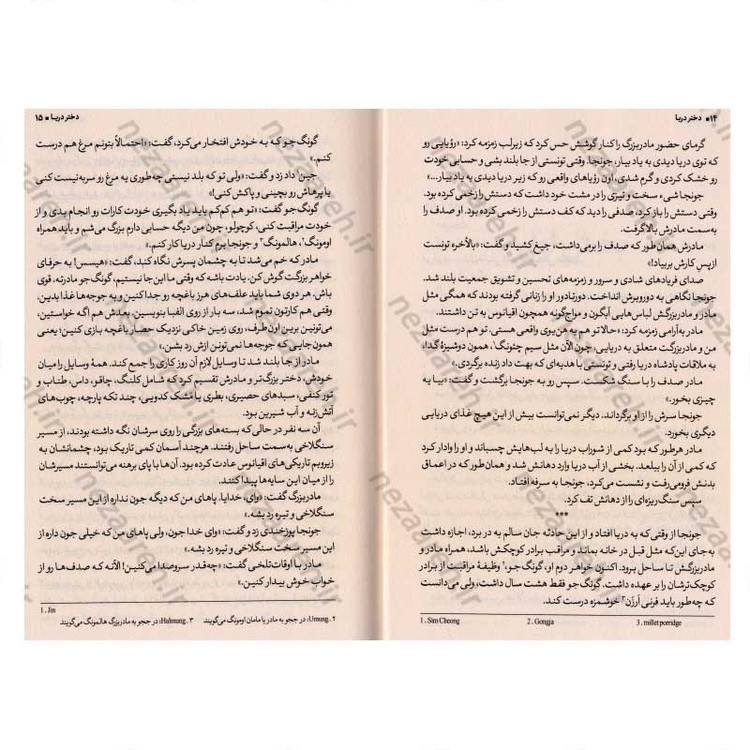 ۱۴ ■ دختر دریا
گرمای حضور مادربزرگ را کنار گوشش حس کرد که زیرلب زمزمه کرد: «رؤیایی رو
که توی دریا دیدی به یاد بیار، جونجا. وقتی تونستی از جا بلند بشی و حسابی خودت
رو خشک کردی و گرم شدی، اون رؤیاهای واقعی رو که زیر دریا دیدی به یاد بیار...»
جونجا شیء سخت و تیزی را در مشت خود داشت که دستش را زخمی کرده بود.
وقتی دستش را باز کرد، صدفی را دید که کف دستش را زخمی کرده بود. او صدف را
به‌سمت مادرش بالا گرفت.
مادرش همان‌طور که صدف را برمی‌داشت، جیغ کشید و گفت: «بالأخره تونست
از پسِ کارش بربیاد!»
صدای فریادهای شادی و سرور و زمزمه‌های تحسین و تشویق جمعیت بلند شد.
جونجا نگاهی به دوروبرش انداخت. دورتادور او را زنانی گرفته بودند که همگی مثل
مادر و مادربزرگش لباس‌هایی آبگون و مواج‌گونه همچون اقیانوس به تن داشتند.
مادر به‌آرامی زمزمه کرد: «حالا تو هم یه هن‌یوی واقعی هستی. تو هم درست مثل
من و مادربزرگت متعلق به دریایی، چون الآن مثل سیم چئونگ¹، همون دوشیزهٔ گدا²
به ملاقات پادشاه دریا رفتی و تونستی با هدیه‌ای که بهت داد زنده برگردی.»
مادر صدف را با سنگ شکست. سپس رو به جونجا برگشت و گفت: «بیا یه
چیزی بخور.»
جونجا سرش را از او برگرداند. دیگر نمی‌توانست بیش از این هیچ غذای دریایی
دیگری بخورد.
مادر هرطور که بود کمی از شوراب دریا را به لب‌هایش چسباند و او را وادار کرد
که کمی از آن را ببلعد. بخشی از آب دریا وارد دهانش شد و همان‌طور که در اعماق
بدنش فرومی‌رفت و نشست می‌کرد، جونجا به سرفه افتاد.
سپس سنگ ریزه‌ای را از دهانش تف کرد.
***
جونجا از وقتی که به دریا افتاد و از این حادثه جان سالم به در برد، اجازه داشت
به‌جای این‌که مثل قبل در خانه بماند و مراقب برادر کوچکش باشد، همراه مادر و
مادربزرگش تا ساحل برود. اکنون خواهر دوم او، گونگ‌جو، وظیفهٔ مراقبت از برادر
کوچک‌ترشان را بر عهده داشت. گونگ‌جو فقط هشت سال داشت، ولی می‌دانست
که چه‌طور باید فرنی اَرزَن³ خوشمزه درست کند.
1. Sim Cheong 2. Gongja 3. millet porridge
دختر دریا ■ ۱۵
گونگ‌جو که به خودش افتخار می‌کرد، گفت: «احتمالاً بتونم مرغ هم درست
کنم.»
جین¹ داد زد و گفت: «ولی تو که بلد نیستی چه‌طوری یه مرغ رو سربه‌نیست کنی
یا پرهاش رو بچینی و پاکش کنی!»
گونگ‌جو گفت: «تو هم کم‌کم باید یاد بگیری خودت کارات رو انجام بدی و از
خودت مراقبت کنی، کوچولو، چون من دیگه حسابی دارم بزرگ می‌شم و باید همراه
اومونگ²، هالمونگ³ و جونجا برم کنار دریا کار کنم.»
مادر که خم می‌شد تا به چشمان پسرش نگاه کند، گفت: «هیسس! به حرفای
خواهر بزرگت گوش کن. یادت باشه که وقتی ما این‌جا نیستیم، گونگ‌جو مادرته، قوی
باش. هر دوی شما باید علف‌های هرز باغچه رو جدا کنین و به جوجه‌ها غذا بدین.
وقتی هم کارتون تموم شد، سه بار از روی الفبا بنویسین. بعدش هم اگه خواستین،
می‌تونین برین اون‌طرف، روی زمین خاکی نزدیک حصار باغچه بازی کنین؛ یعنی
همون جایی که جوجه‌ها نمی‌تونن ازش رد بشن.»
مادر از جا بلند شد تا وسایل لازم آن روز کاری را جمع کند. همهٔ وسایل را میان
خودش، دختر بزرگ‌تر و مادرش تقسیم کرد که شامل کلنگ، چاقو، داس، طناب و
تور کنفی، سبدهای حصیری، بطری یا مَشک کدویی، چند تکه پارچه، چوب‌های
آتش‌زنه و آب شیرین بود.
آن سه نفر در حالی که بسته‌های بزرگی را روی سرشان نگه داشته بودند، از مسیر
سنگلاخی به‌سمت ساحل رفتند. هرچند آسمان کمی تاریک بود، چشمانشان به
زیروبم تاریکی‌های اقیانوس عادت کرده بود. آن‌ها با پای برهنه می‌توانستند مسیرشان
را از میان این سایه‌ها پیدا کنند.
مادربزرگ گفت: «وای خدایا. پاهای من که دیگه جون نداره از این مسیر سخت
سنگلاخی و تیره رد بشه.»
جونجا پوزخندی زد و گفت: «وای خدا جون، ولی پاهای من که خیلی جون داره از
این مسیر سخت سنگلاخی و تیره رد بشه.»
مادر با اوقات‌تلخی گفت: «چه‌قدر سروصدا می‌کنین! الآنه که صدف‌ها رو از
خواب خوش بیدار کنین.»
1. Jin
۲. Umung: در ججو به مادر یا مامان اومونگ می‌گویند ۳. Halmung: در ججو به مادربزرگ هالمونگ می‌گویند
nezaareh.ir